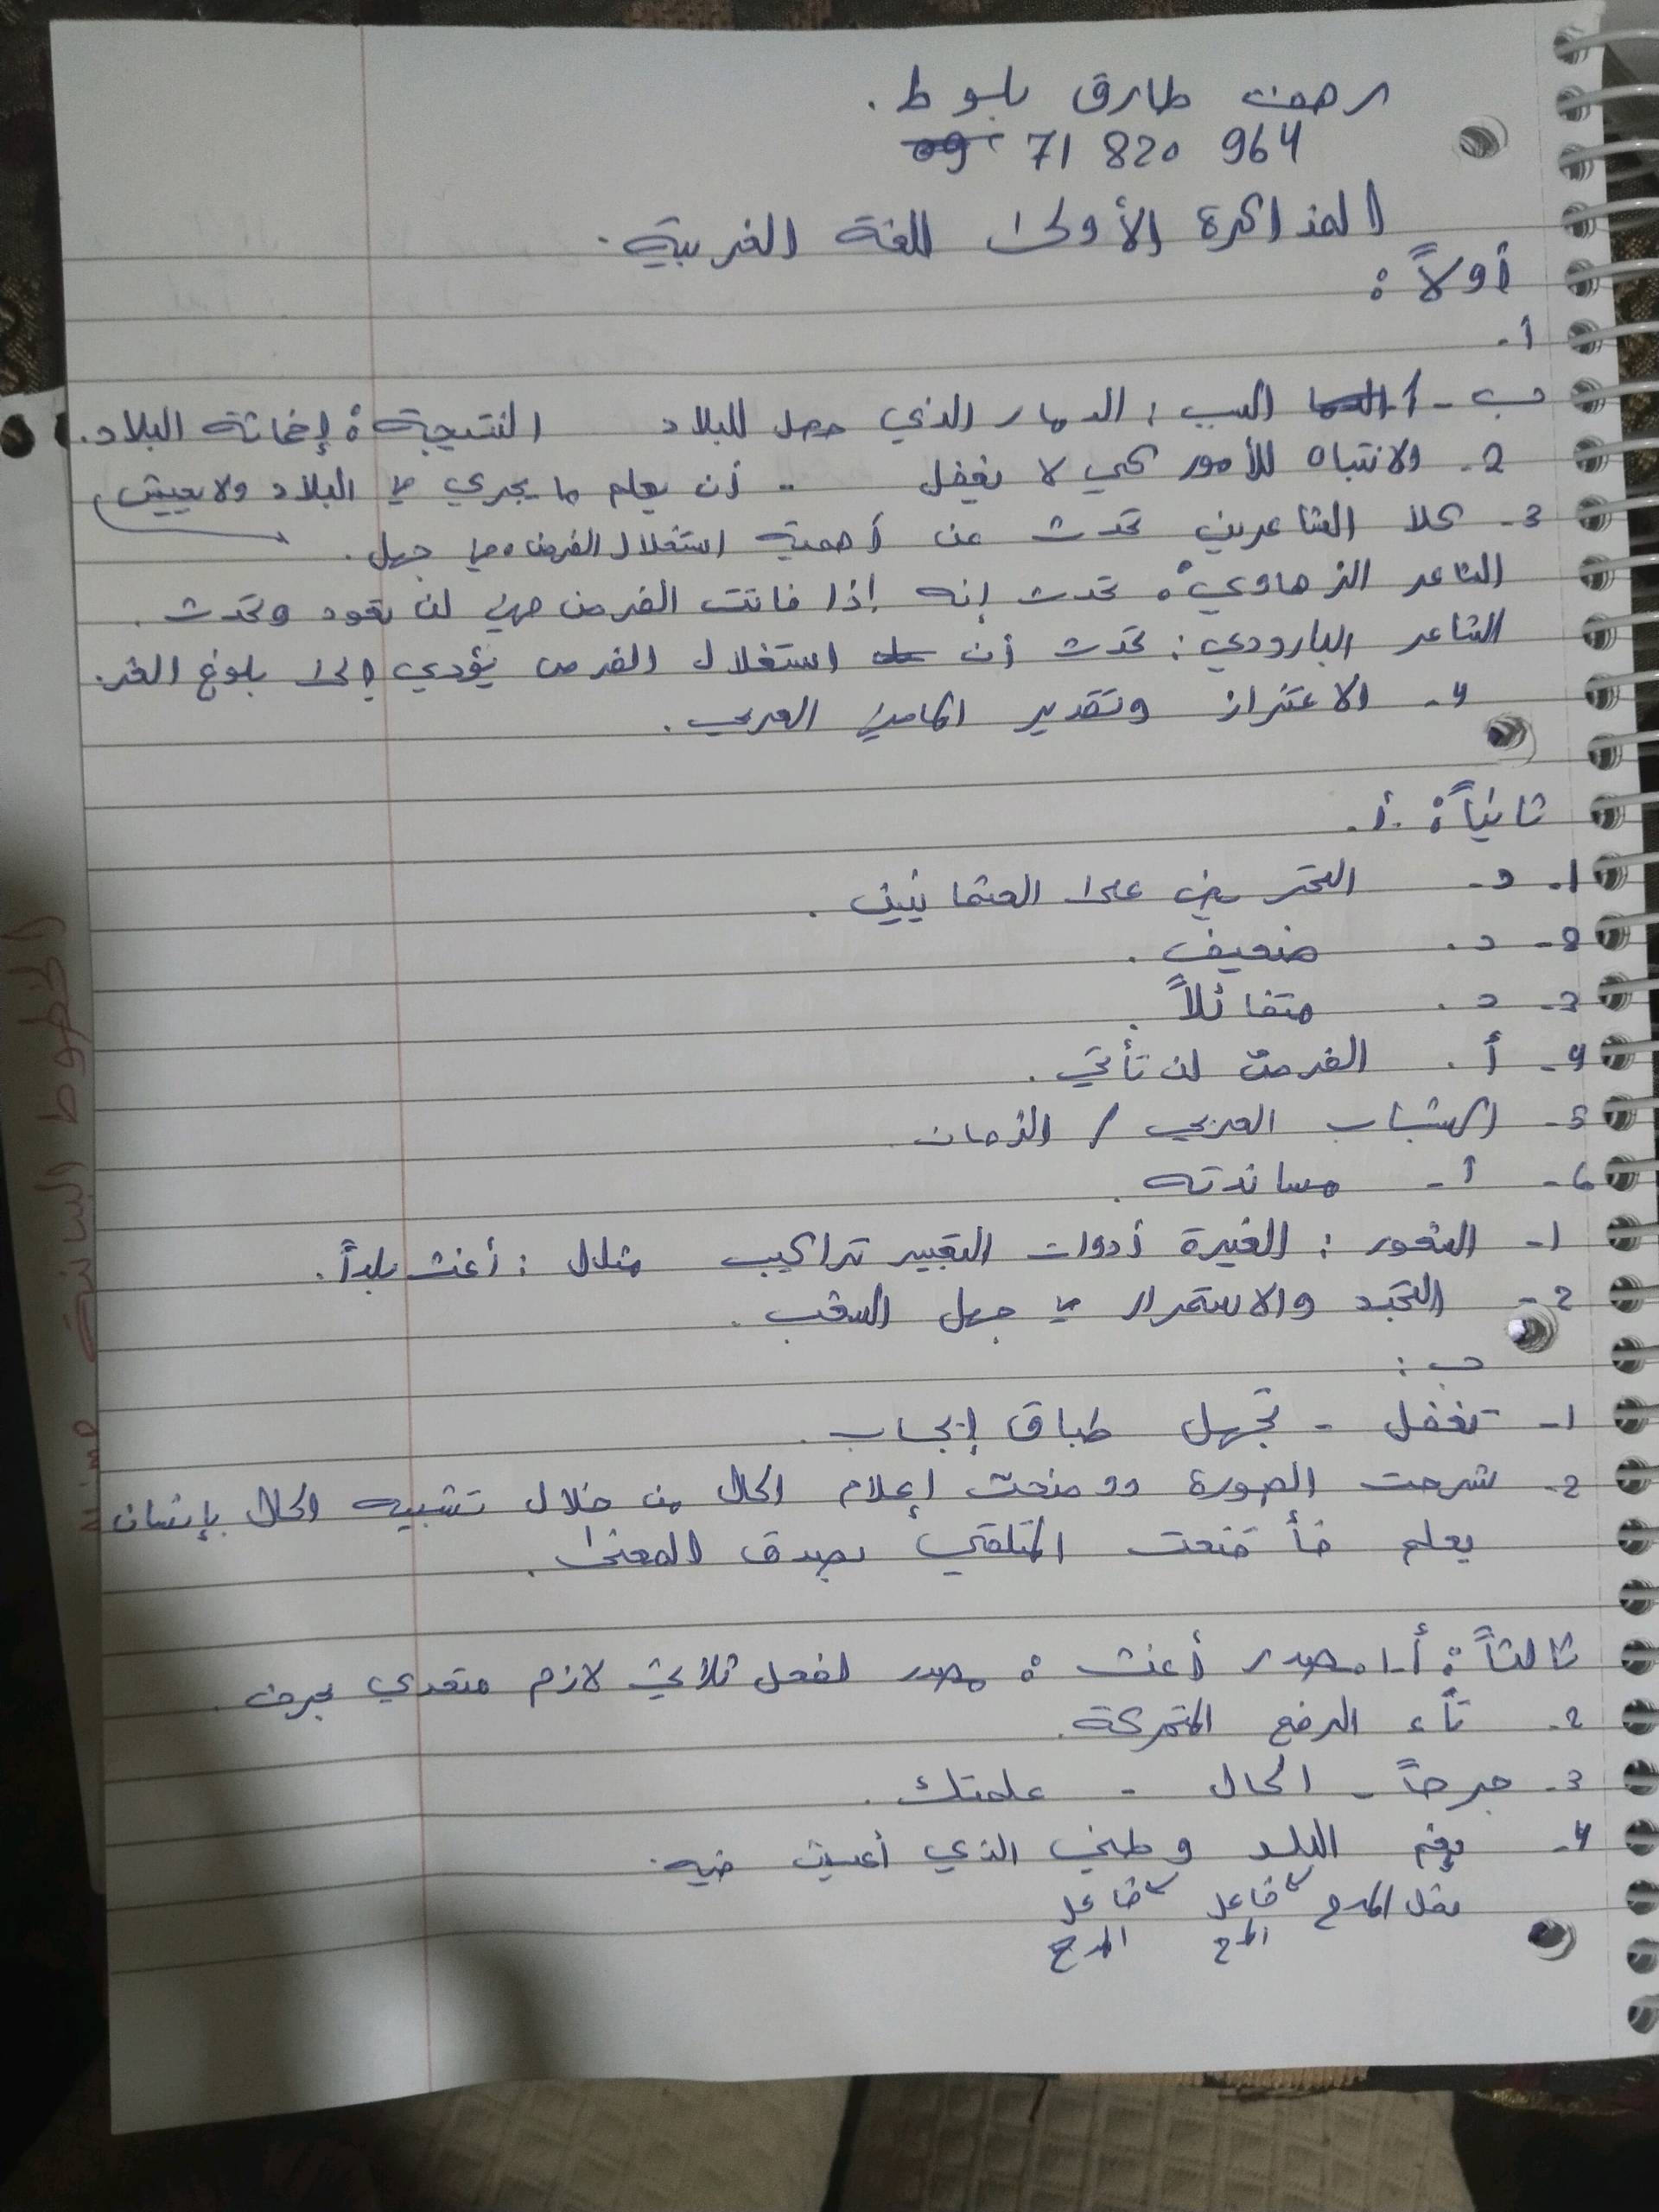 رحمة طارق بلوط .
09 71 820 964
المذاكرة الأولى للغة العربية .
أولاً :
أ .
ب - 1 السبب : الدمار الذي حصل للبلاد النتيجة : إغاثة البلاد .
2 - الانتباه للأمور كي لا نغفل - أن يعلم ما يجري في البلاد ولا يعيش في جهل .
3 - كلا الشاعرين تحدث عن أهمية استغلال الفرص
الشاعر الزهاوي : تحدث إنه إذا فاتت الفرص فهي لن تعود وتحدث .
الشاعر البارودي : تحدث أن استغلال الفرص يؤدي إلى بلوغ
4 - الاعتزاز وتقدير الماضي العربي .
ثانياً : أ .
1 - د - التحريض على العثمانيين .
2 - د . ضعيف .
3 - د . متفائلاً .
4 - أ . الفرص لن تأتي .
5 - الشباب العربي / الزمان
6 - أ - مساندته .
1 - الشعور : الغيرة أدوات التعبير تراكيب مثال : أغث بلداً .
2 - التجدد والاستمرار في جهل الشعب .
ب :
1 - تغفل - تجهل طباق إيجاب .
2 - شرحت الصورة ووضحت إعلام الحال من خلال تشبيه الحال بإنسان
يعلم فأقنعت المتلقي بصدق المعنى .
ثالثاً : أ - 1 مصدر أغث : مصدر لفعل ثلاثي لازم متعدي بحرف .
2 - تاء الرفع المتحركة .
3 - جرحاً - الحال - علمتك .
4 - نعم البلد وطني الذي أعيش فيه .
فعل المدح فاعل فاعل
المدح المدح